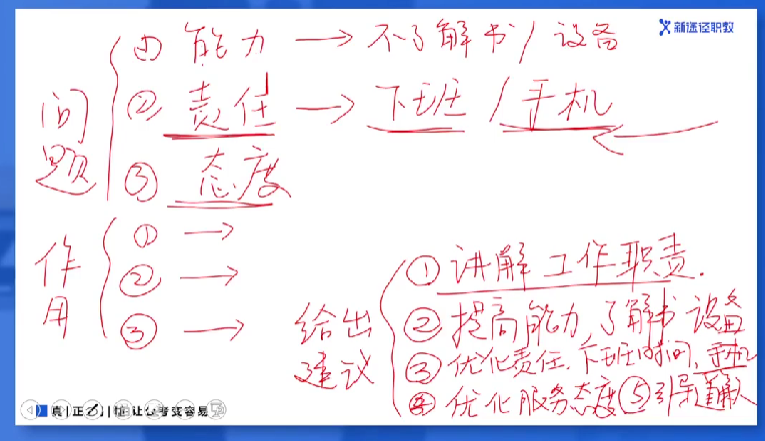 新途径职教
问题
① 能力 → 不了解书/设备
② 责任 → 下班/手机
③ 态度
作用
① →
② →
③ →
给出建议
① 讲解工作职责.
② 提高能力,了解书设备
③ 优化责任.下班时间,手机
④ 优化服务态度⑤引导
真|正
让公考变容易